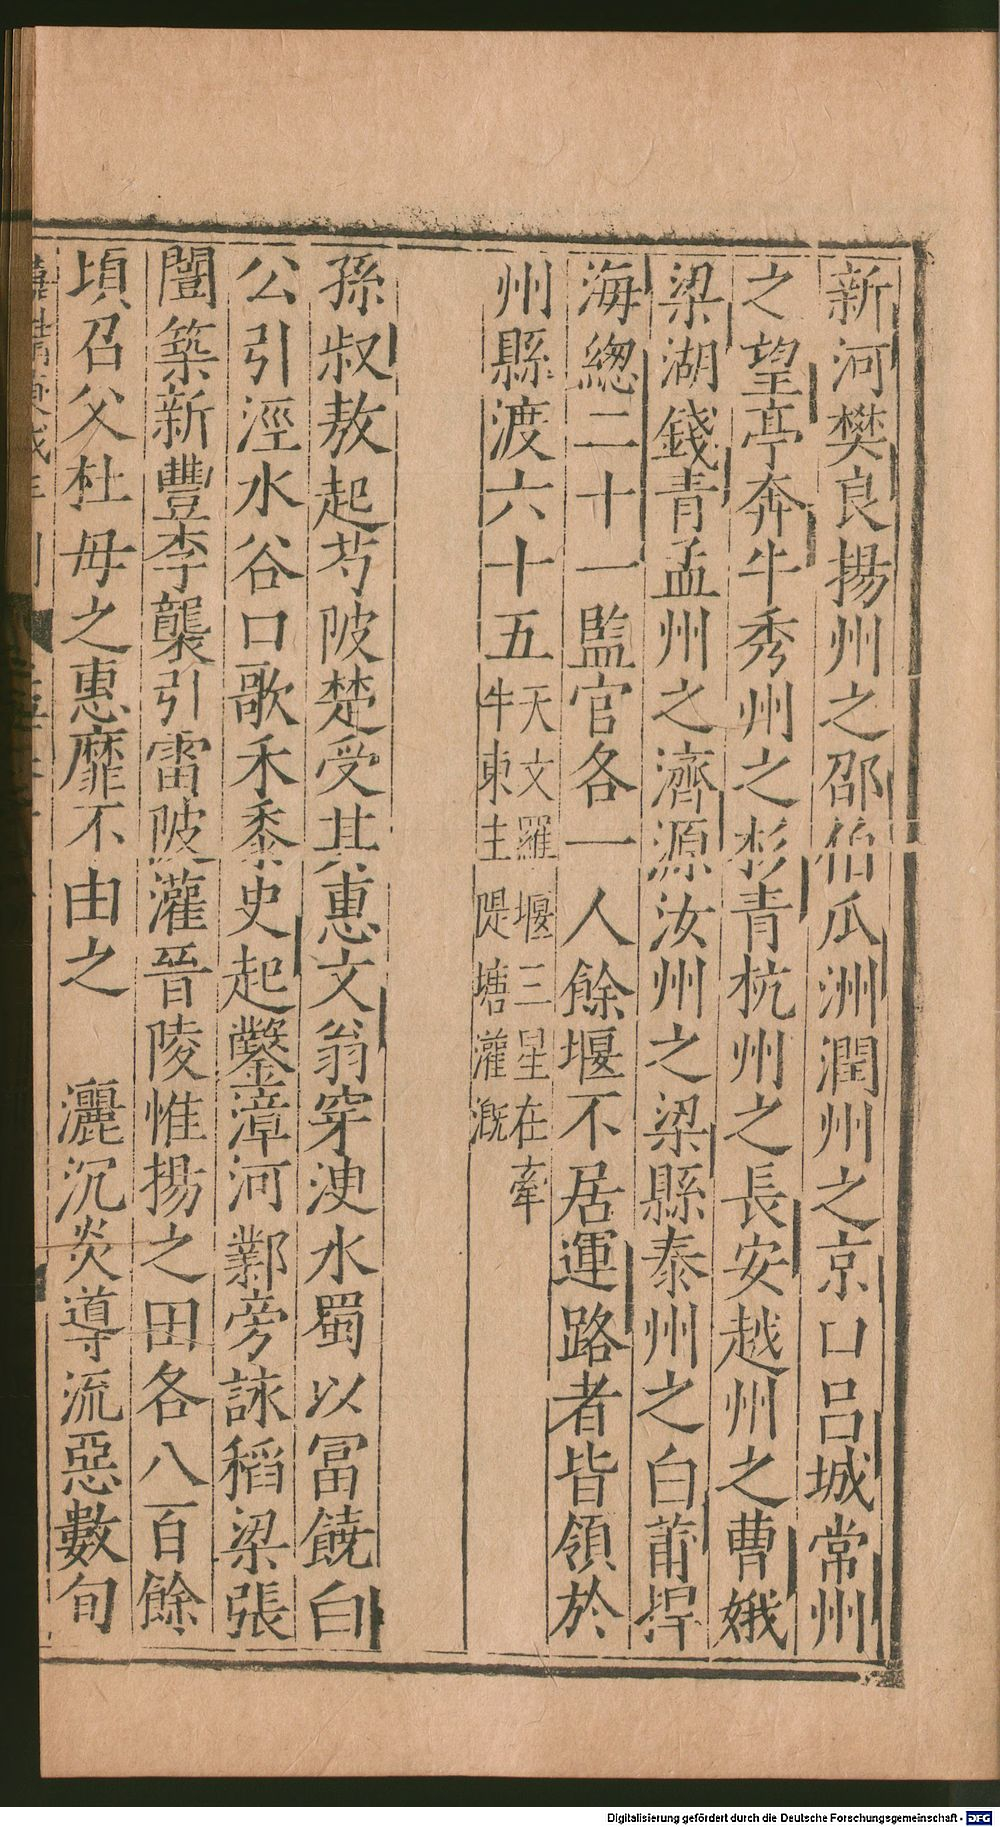 新河樊良揚州之邵伯瓜洲潤州之京口呂城常州
之望亭奔牛秀州之杉青杭州之長安越州之曹娥
梁湖錢青孟州之濟源汝州之梁縣泰州之白莆捍
海緫二十一監官各一人餘堰不居運路者皆領於
州縣渡六十五天文羅堰三星在牽
牛東主隄塘灌漑
孫叔敖起芍陂楚受其惠文翁穿洩水蜀以冨饒白
公引涇水谷口歌禾黍史起鑿漳河鄴旁詠稻梁張
闓築新豐李襲引雷陂灌晉陵惟揚之田各八百餘
頃召父杜母之惠靡不由之　灑沉炎導流惡數旬
Digitalisierung gefördert durch die Deutsche Forschungsgemeinschaft - DFG